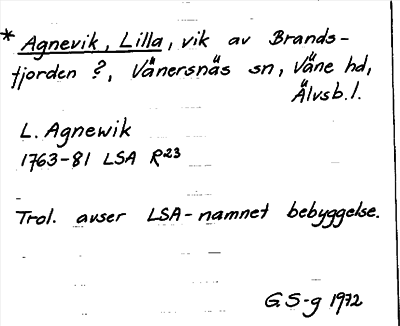 * Agnevik, Lilla, vik av Brands-
fjorden ?, Vänersnäs sn, Väne hd,
Älvsb. l.
L. Agnewik
1763-81 LSA R23
Trol. avser LSA-namnet bebyggelse.
GS-g 1972